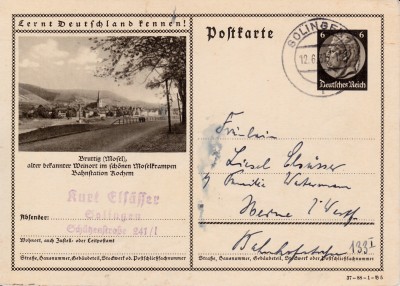 Lernt Deutschland kennen!
Bruttig (Mosel),
alter bekannter Weinort im schönen Moselkrampen
Bahnstation Kochem
Kurt Elsässer
Solingen
Schützenstraße 241/I
Absender:
Wohnort, auch Zustell- oder Leitpostamt
Straße, Hausnummer, Gebäudeteil, Stockwerk od. Postschließfachnummer
Postkarte
SOLINGEN
12.6
6 6
Deutsches Reich
Fräulein
Liesel Elsässer
Familie Watermann
Werne i/ Westf.
Bahnhofstraße 133 I
Straße, Hausnummer, Gebäudeteil, Stockwerk oder Postschließfachnummer